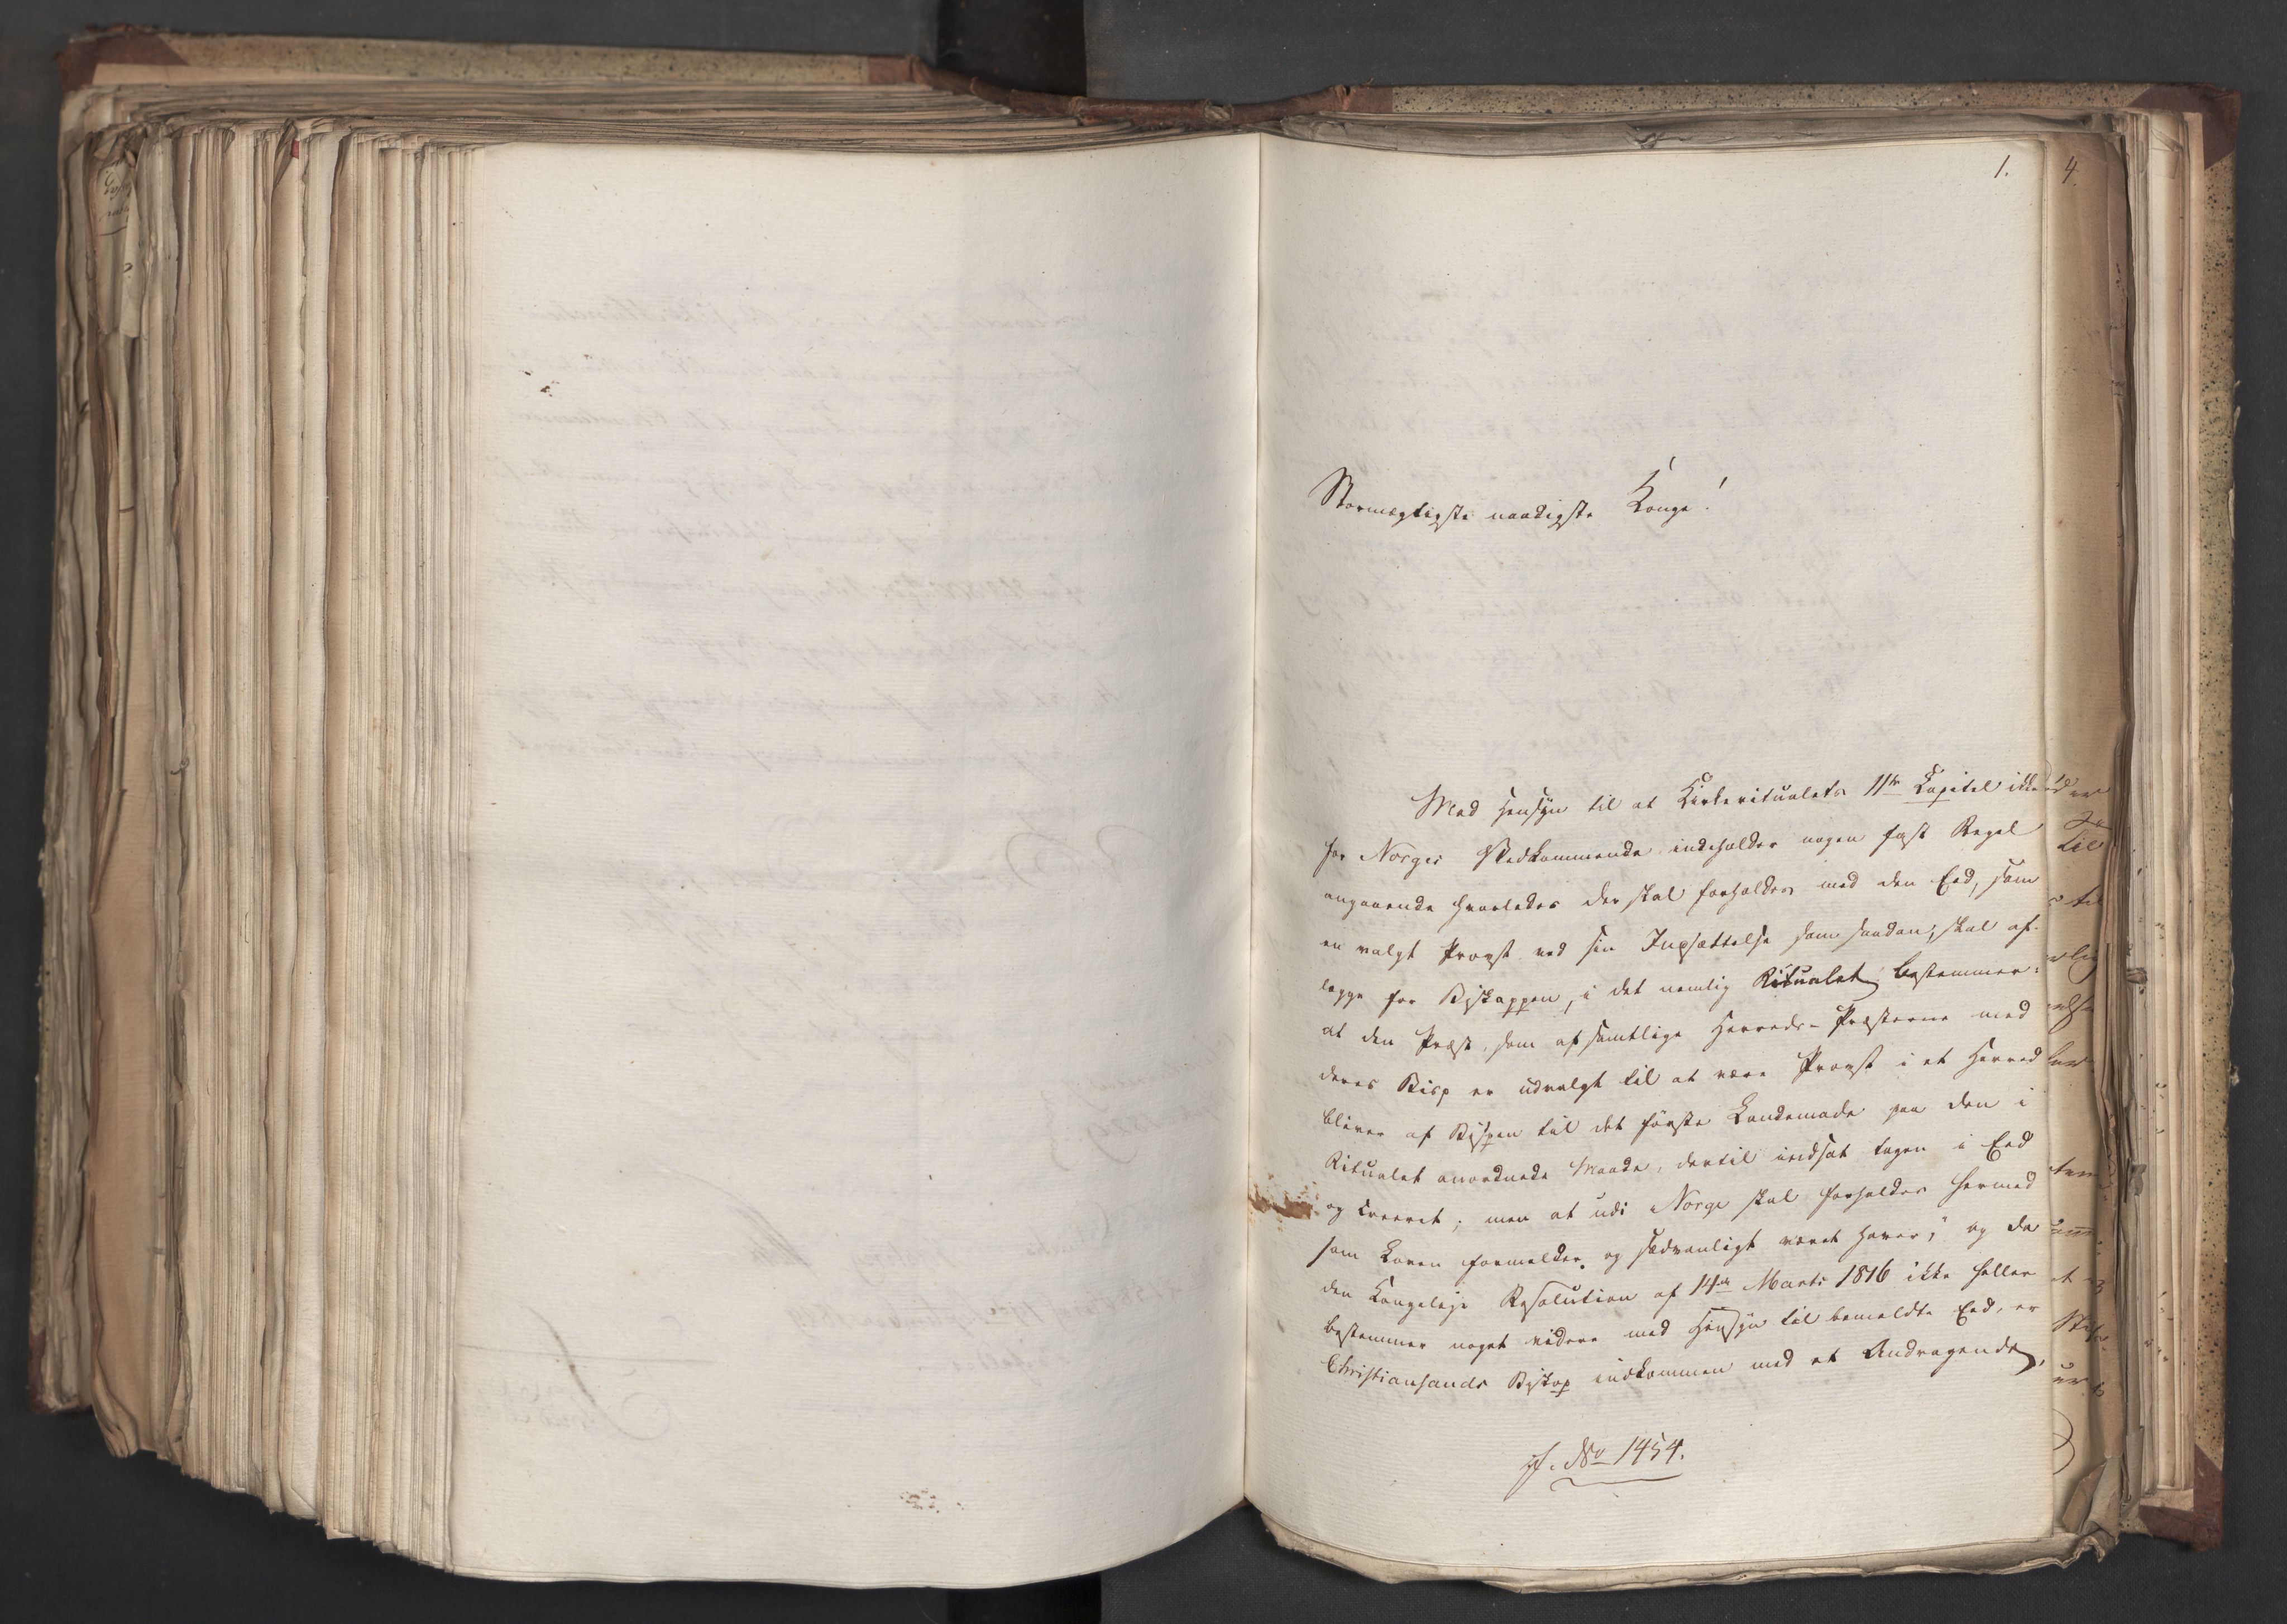 1.
4.
Stormægtigste naadigste Konge!
Med Hensyn til at Kirkeritualets 11te Capitel ikke
for Norges Vedkommende indeholder nogen fast Regel
angaaende hvorledes der skal forholdes med den Eed, som
en valgt Provst ved sin Indsættelse som saadan, skal af-
lægge for Biskoppen, i det nemlig Ritualet bestemmer:
at den Præst, som af samtlige Herreds-Præsterne med
deres Bisp er udvalgt til at være Provst i et Herred
bliver af Bispen til det første Landemode paa den i
Ritualet anordnede Maade, dertil indsat tagen i Eed
og creeret; men at udi Norge skal forholdes hermed
som Loven formelder og sædvanligt været haver; og da
den Kongelige Resolution af 14de Marts 1816 ikke heller
bestemmer noget videre med Hensyn til bemeldte Eed, er
Christiansands Biskop indkommen med et Andragende,
No 1454.